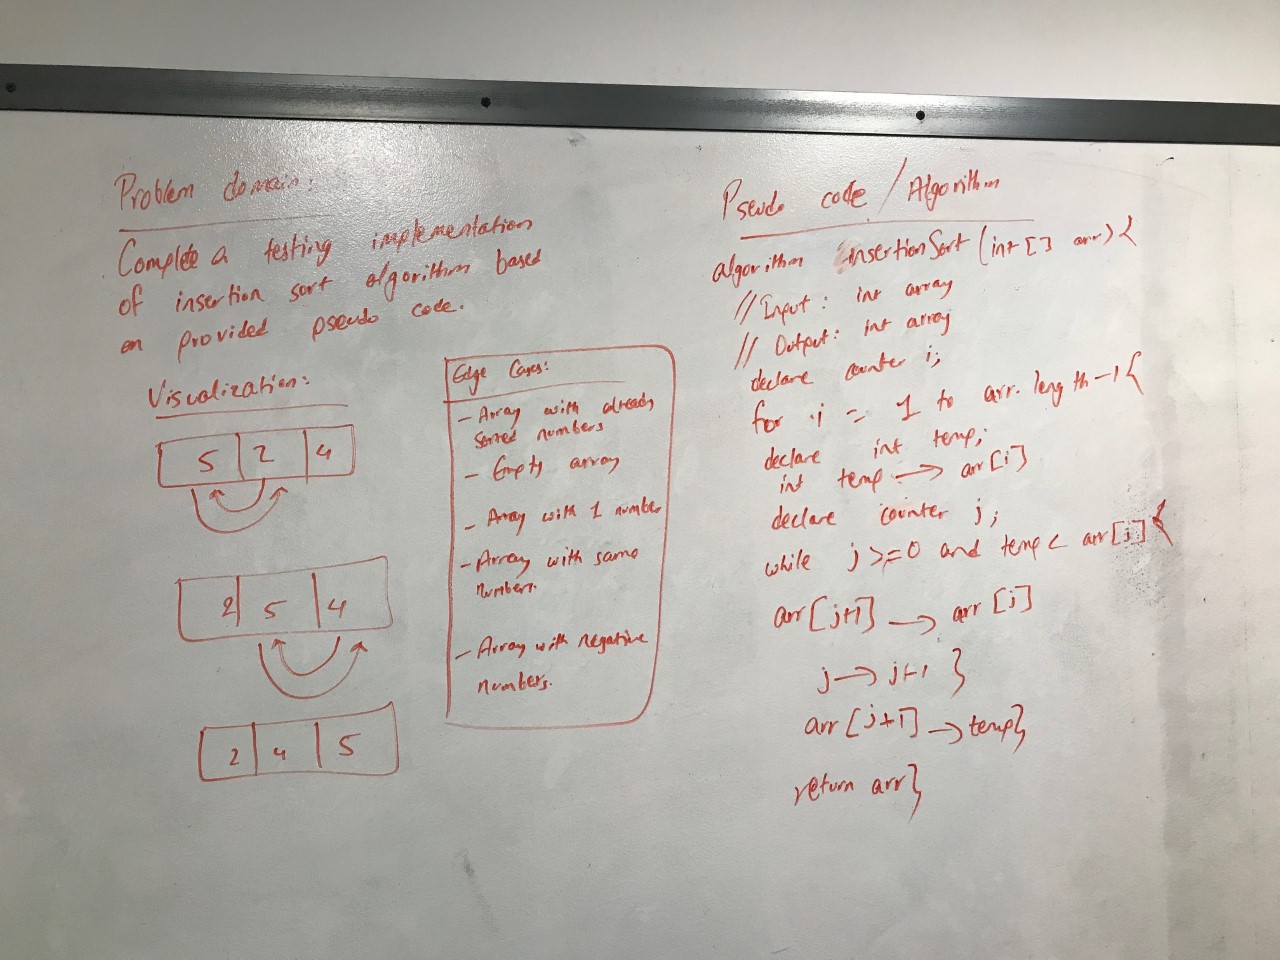 Problem domain:
Complete a testing implementation
of insertion sort algorithm based
on provided pseudo code.
Visualization:
5 2 4
2 5 4
2 4 5
Edge Cases:
- Array with already
sorted numbers
- Empty array
- Array with 1 number
- Array with same
numbers.
- Array with negative
numbers.
Pseudo code / Algorithm
algorithm insertionSort (int [] arr) {
// Input: int array
// Output: int array
declare counter i;
for i = 1 to arr.length-1 {
declare int temp;
int temp → arr[i]
declare counter j;
while j >=0 and temp < arr[j] {
arr[j+1] → arr[j]
j → j+1 }
arr[j+1] → temp}
return arr}